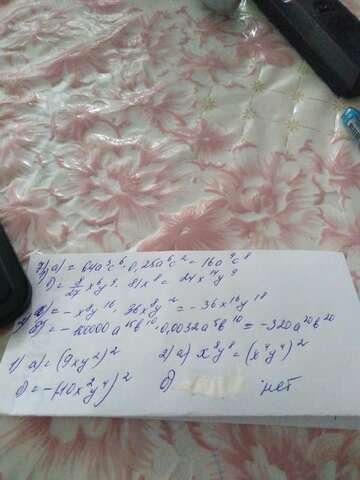 а) = 64a³c⁶ · 0,25a⁶c² = 16a⁹c⁸
б) = 8/27 x⁶y⁹ · 81x⁸ = 24x¹⁴y⁹
а) = -x⁸y¹⁶ · 36x⁸y² = -36x¹⁶y¹⁸
б) = -100000a¹⁵b¹⁰ · 0,0032a⁵b¹⁰ = -320a²⁰b²⁰
1) а) = (9xy²)² 2) а) x⁸y⁸ = (x⁴y⁴)²
б) = -(10x²y⁴)² б) нет